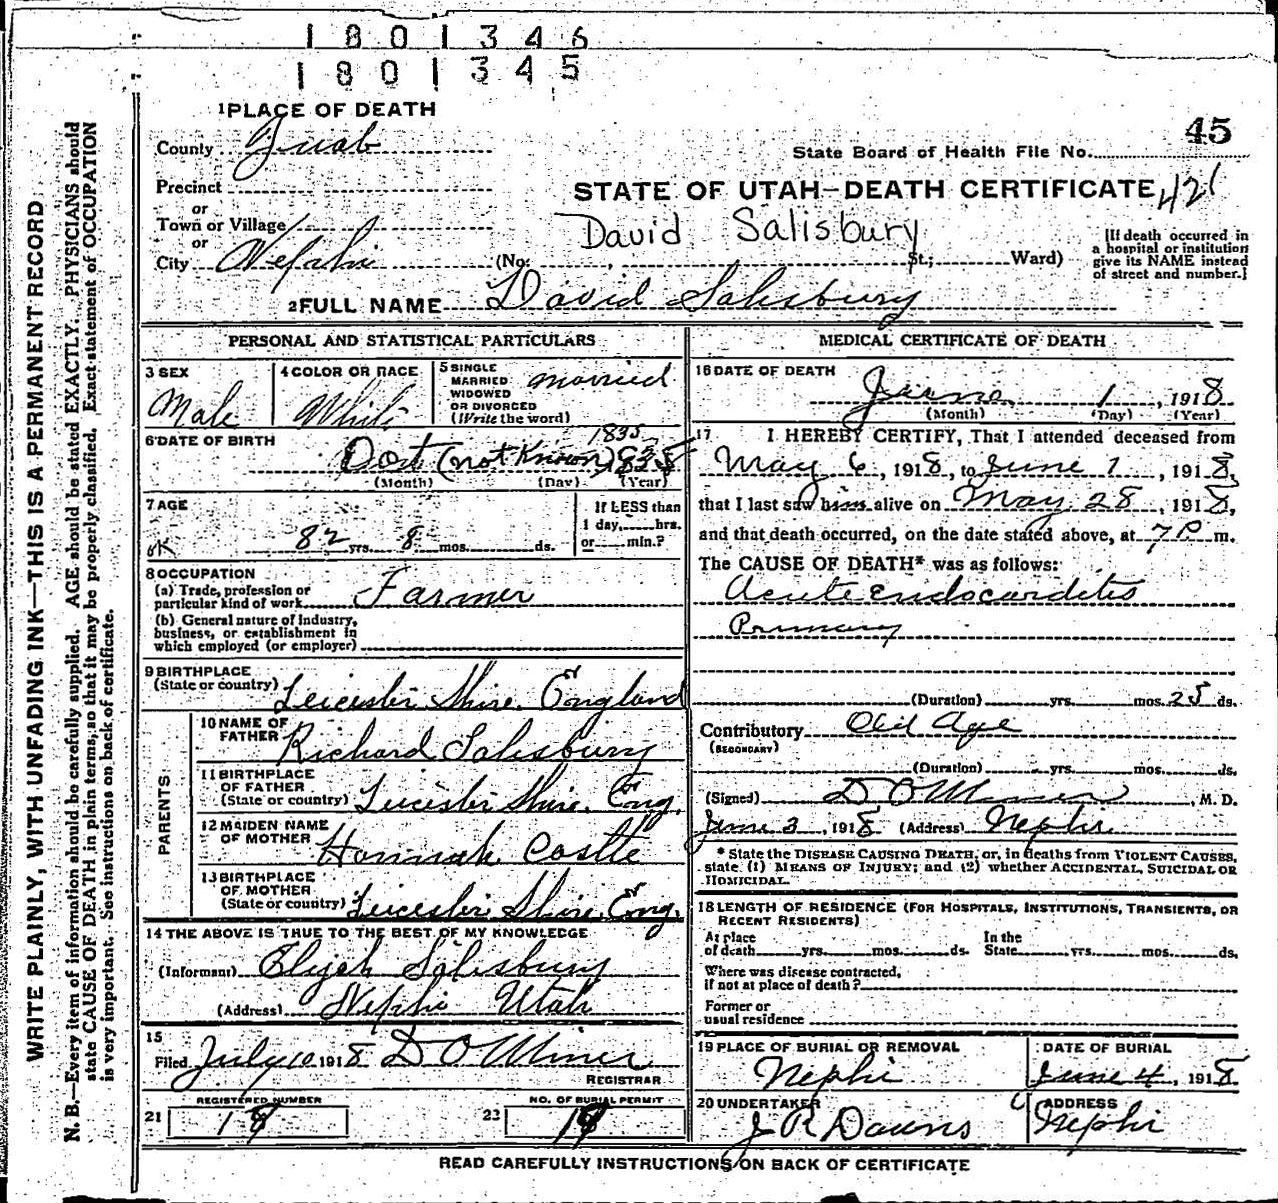 1801346
1801345
1 PLACE OF DEATH
County Juab
Precinct
or
Town or Village
or
City Nephi
(No. St.; Ward)
45
State Board of Health File No.
STATE OF UTAH—DEATH CERTIFICATE 421
David Salisbury
[If death occurred in
a hospital or institution
give its NAME instead
of street and number.]
2 FULL NAME David Salisbury
PERSONAL AND STATISTICAL PARTICULARS
3 SEX
Male
4 COLOR OR RACE
White
5 SINGLE
MARRIED
WIDOWED
OR DIVORCED
(Write the word)
married
6 DATE OF BIRTH
1835
Oct (not Known) 1835
(Month) (Day) (Year)
7 AGE
OK 82 yrs. 8 mos. ds.
If LESS than
1 day, hrs.
or min.?
8 OCCUPATION
(a) Trade, profession or
particular kind of work Farmer
(b) General nature of industry,
business, or establishment in
which employed (or employer)
9 BIRTHPLACE
(State or country) Leicester Shire. England
PARENTS
10 NAME OF
FATHER Richard Salisbury
11 BIRTHPLACE
OF FATHER
(State or country) Leicester Shire. Eng.
12 MAIDEN NAME
OF MOTHER Hannah Castle
13 BIRTHPLACE
OF MOTHER
(State or country) Leicester Shire. Eng.
14 THE ABOVE IS TRUE TO THE BEST OF MY KNOWLEDGE
(Informant) Elijah Salisbury
(Address) Nephi Utah
15
Filed July 10 1918 D O Miner
REGISTRAR
REGISTERED NUMBER
21 18
NO. OF BURIAL PERMIT
22 18
MEDICAL CERTIFICATE OF DEATH
16 DATE OF DEATH
June 1, 1918
(Month) (Day) (Year)
17 I HEREBY CERTIFY, That I attended deceased from
May 6, 1918, to June 1, 1918,
that I last saw him alive on May 28, 1918,
and that death occurred, on the date stated above, at 7 P m.
The CAUSE OF DEATH* was as follows:
Acute Endocarditis
Primary
(Duration) yrs. mos. 25 ds.
Contributory Old Age
(SECONDARY)
(Duration) yrs. mos. ds.
(Signed) D O Miner, M. D.
June 3, 1918 (Address) Nephi
* State the DISEASE CAUSING DEATH, or, in deaths from VIOLENT CAUSES,
state (1) MEANS OF INJURY; and (2) whether ACCIDENTAL, SUICIDAL OR
HOMICIDAL.
18 LENGTH OF RESIDENCE (FOR HOSPITALS, INSTITUTIONS, TRANSIENTS, OR
RECENT RESIDENTS)
At place
of death yrs. mos. ds.
In the
State yrs. mos. ds.
Where was disease contracted,
if not at place of death?
Former or
usual residence
19 PLACE OF BURIAL OR REMOVAL
Nephi
DATE OF BURIAL
June 4, 1918
20 UNDERTAKER
J R Downs
ADDRESS
Nephi
READ CAREFULLY INSTRUCTIONS ON BACK OF CERTIFICATE
WRITE PLAINLY, WITH UNFADING INK—THIS IS A PERMANENT RECORD
N. B.—Every item of information should be carefully supplied. AGE should be stated EXACTLY. PHYSICIANS should
state CAUSE OF DEATH in plain terms, so that it may be properly classified. Exact statement of OCCUPATION
is very important. See instructions on back of certificate.